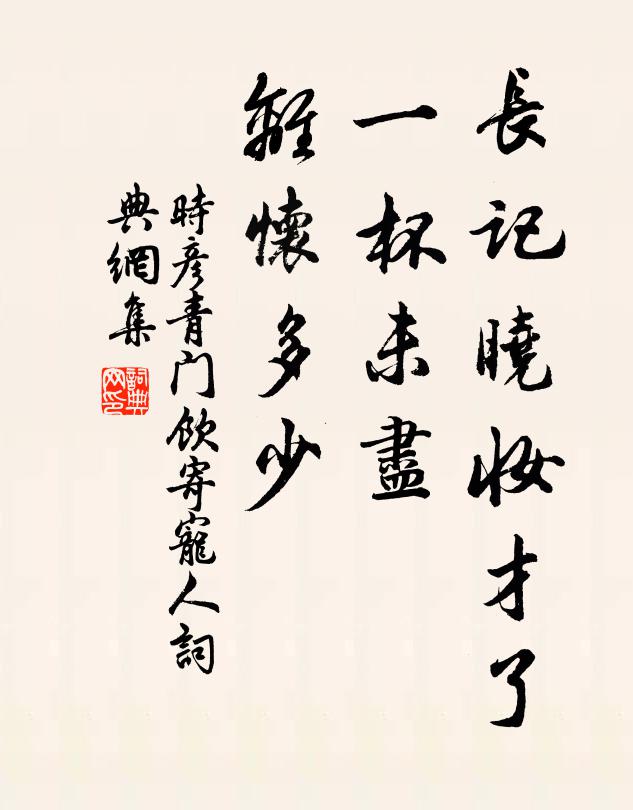 長記曉妝才了
一杯未盡
離懷多少
時彥青门飲寄寵人詞
典網集
詞典網印